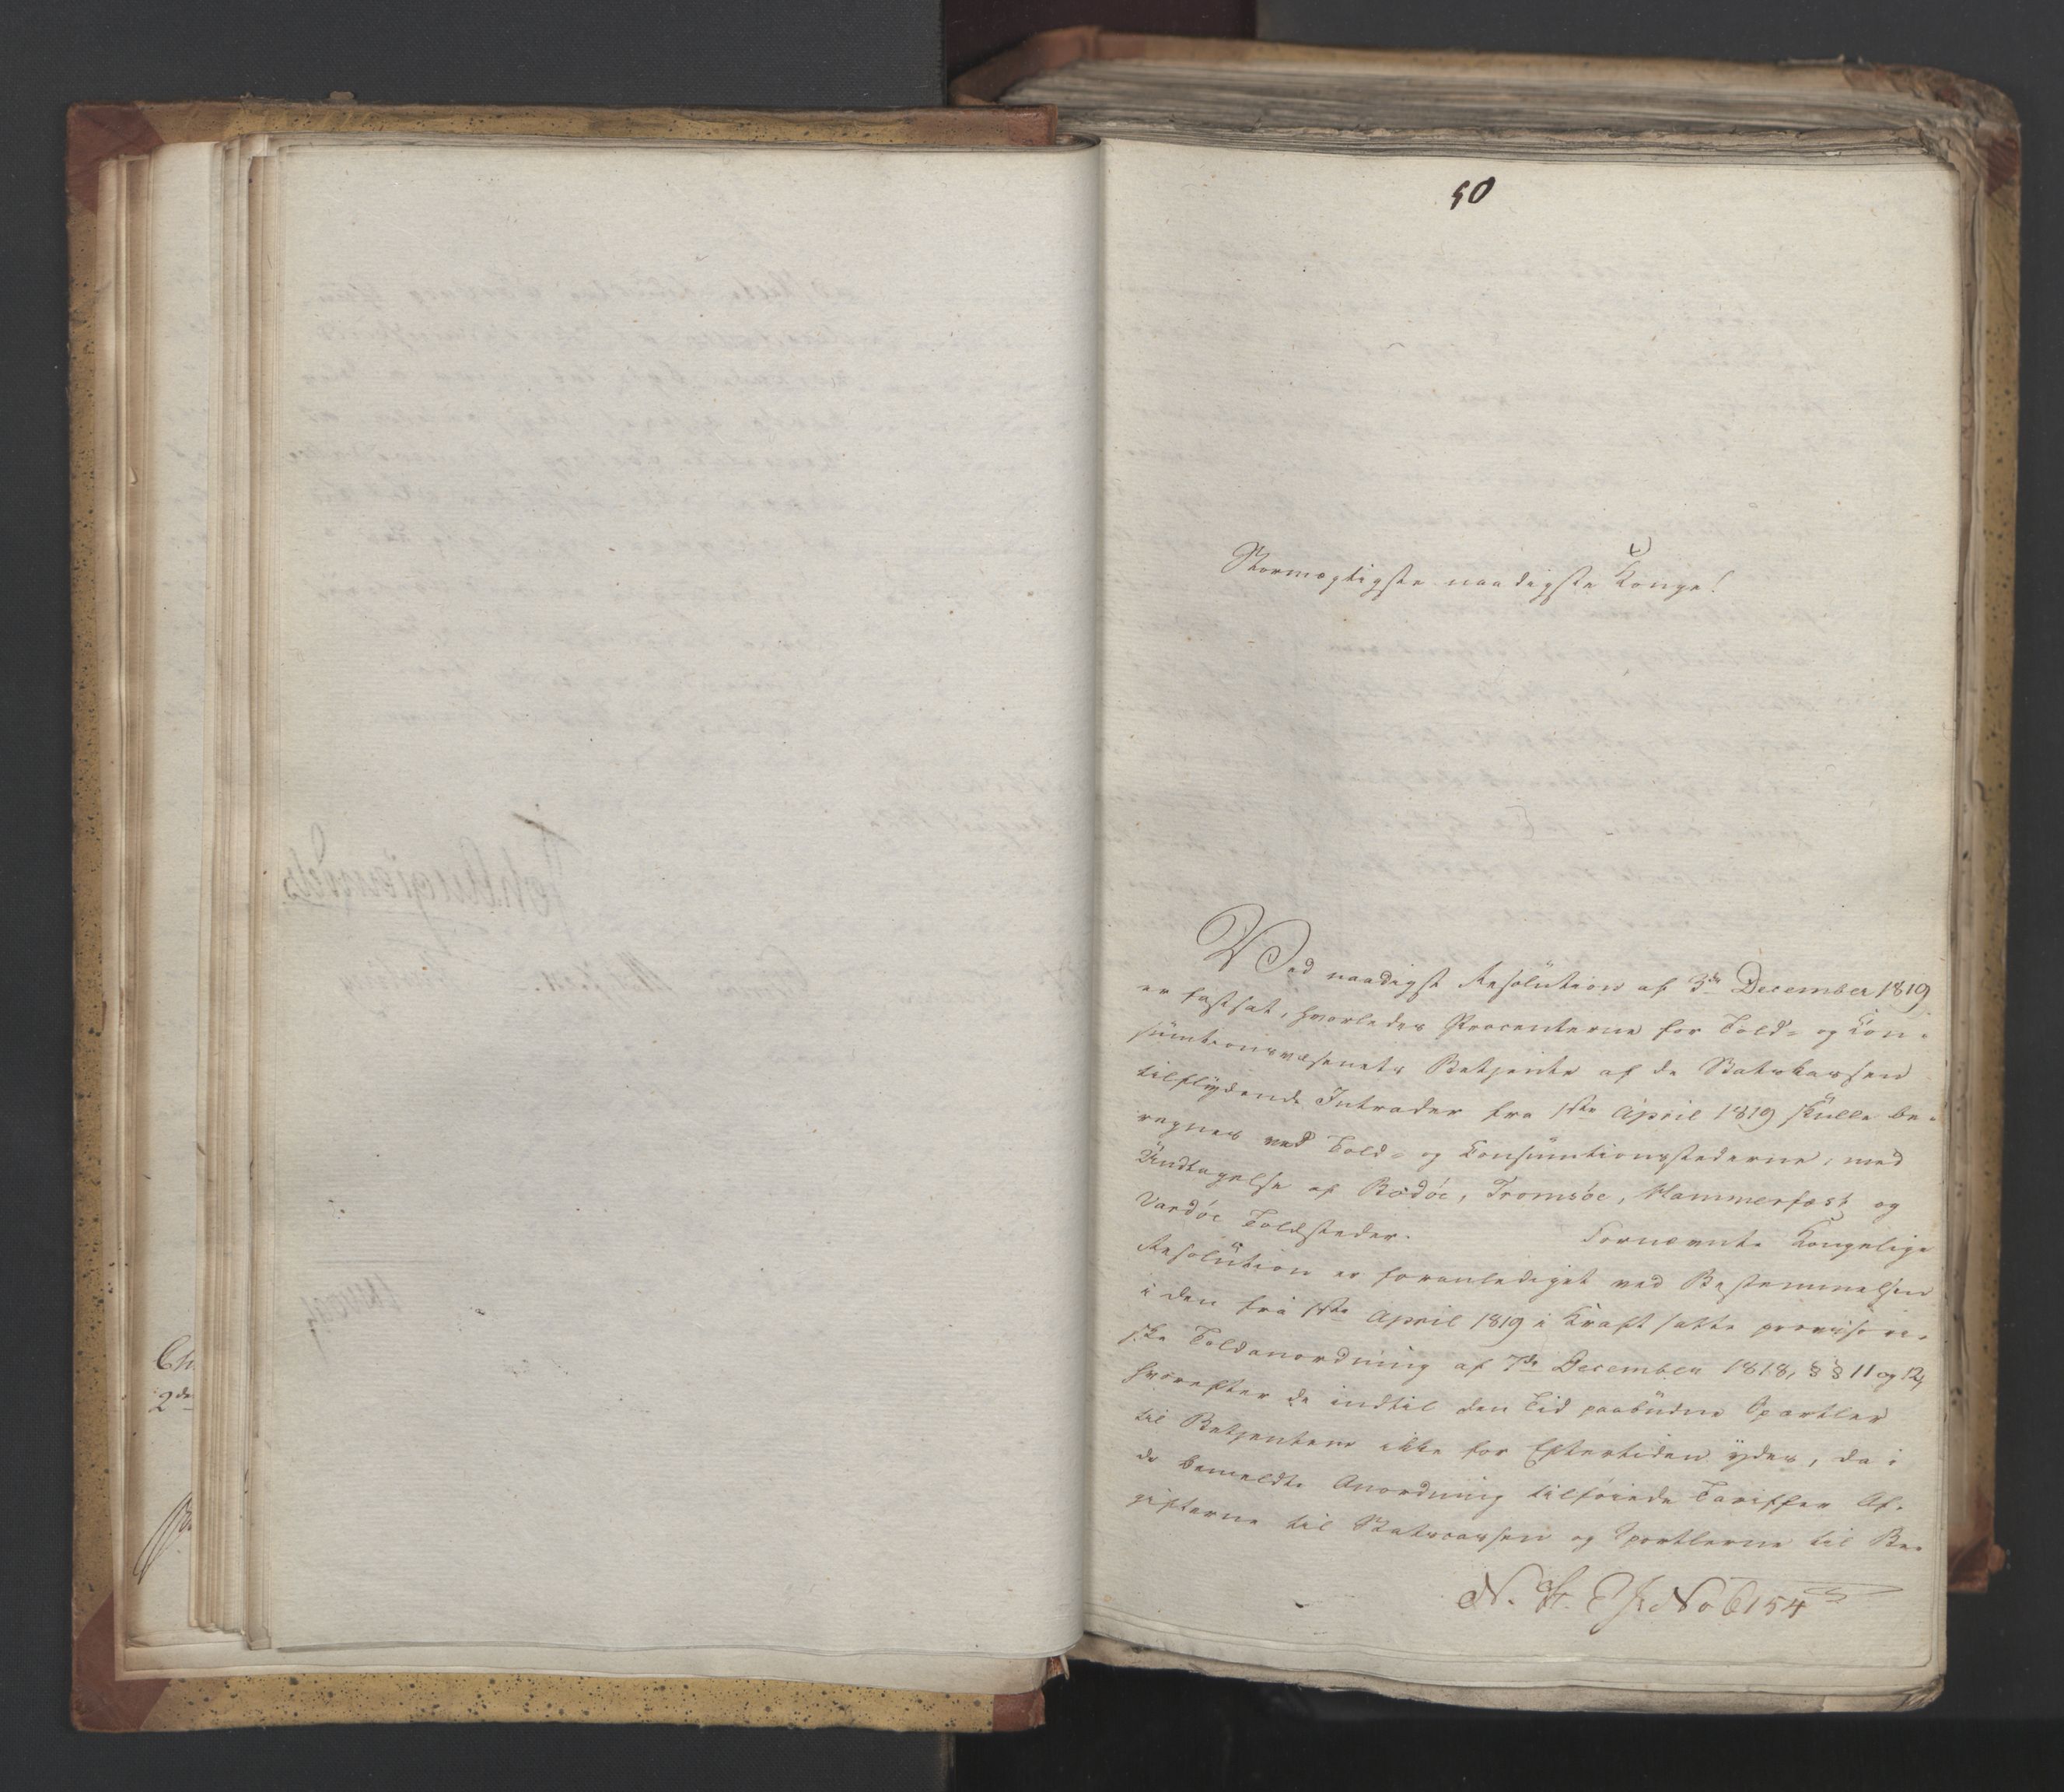 50
Stormægtigste naadigste Konge!
Ved naadigst Resolution af 3de December 1819
er fastsat, hvorledes Procenterne for Told- og Con-
sumtionsvæsenets Betjente af de Statskassen
tilflydende Intrader fra 1ste April 1819 skulle be-
regnes ved Told- og Consumtionsstederne, med
Undtagelse af Bodøe, Tromsøe, Hammerfest og
Vardøe Toldsteder. Fornævnte Kongelige
Resolution er foranlediget ved Bestemmelsen
i den fra 1ste April 1819 i Kraft satte provisori-
ske Toldanordning af 7de December 1818, §§ 11 og 12,
hvorefter de indtil den Tid paabudne Sportler
til Betjentene ikke for Eftertiden ydes, da i
de bemeldte Anordning tilføiede Tariffer Af-
gifterne til Statscassen og Sportlerne til Be-
No 6154
Ch
2de